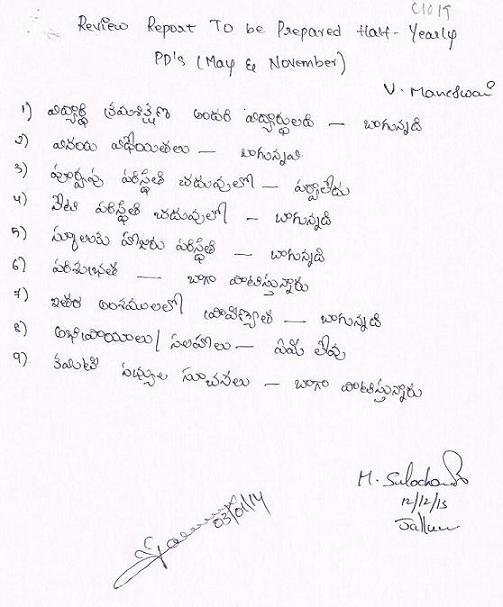 C1019
Review Report To be Prepared Half-Yearly
PD's (May & November)
V. Maneswari
1) విద్యార్థి క్రమశిక్షణ అందరి విద్యార్థులది — బాగున్నది
2) వినయ విధేయతలు — బాగున్నవి
3) పూర్వపు పరిస్థితి చదువులో — పర్వాలేదు
4) నేటి పరిస్థితి చదువులో — బాగున్నది
5) స్కూలుకు హాజరు పరిస్థితి — బాగున్నది
6) పరిశుభ్రత — బాగా పాటిస్తున్నారు
7) ఇతర అంశములలో ప్రావీణ్యత — బాగున్నది
8) అభిప్రాయాలు/సలహాలు — ఏమీ లేవు
9) కమిటి సభ్యుల సూచనలు — బాగా పాటిస్తున్నారు
M. Sulochana
12/12/13
03/01/14